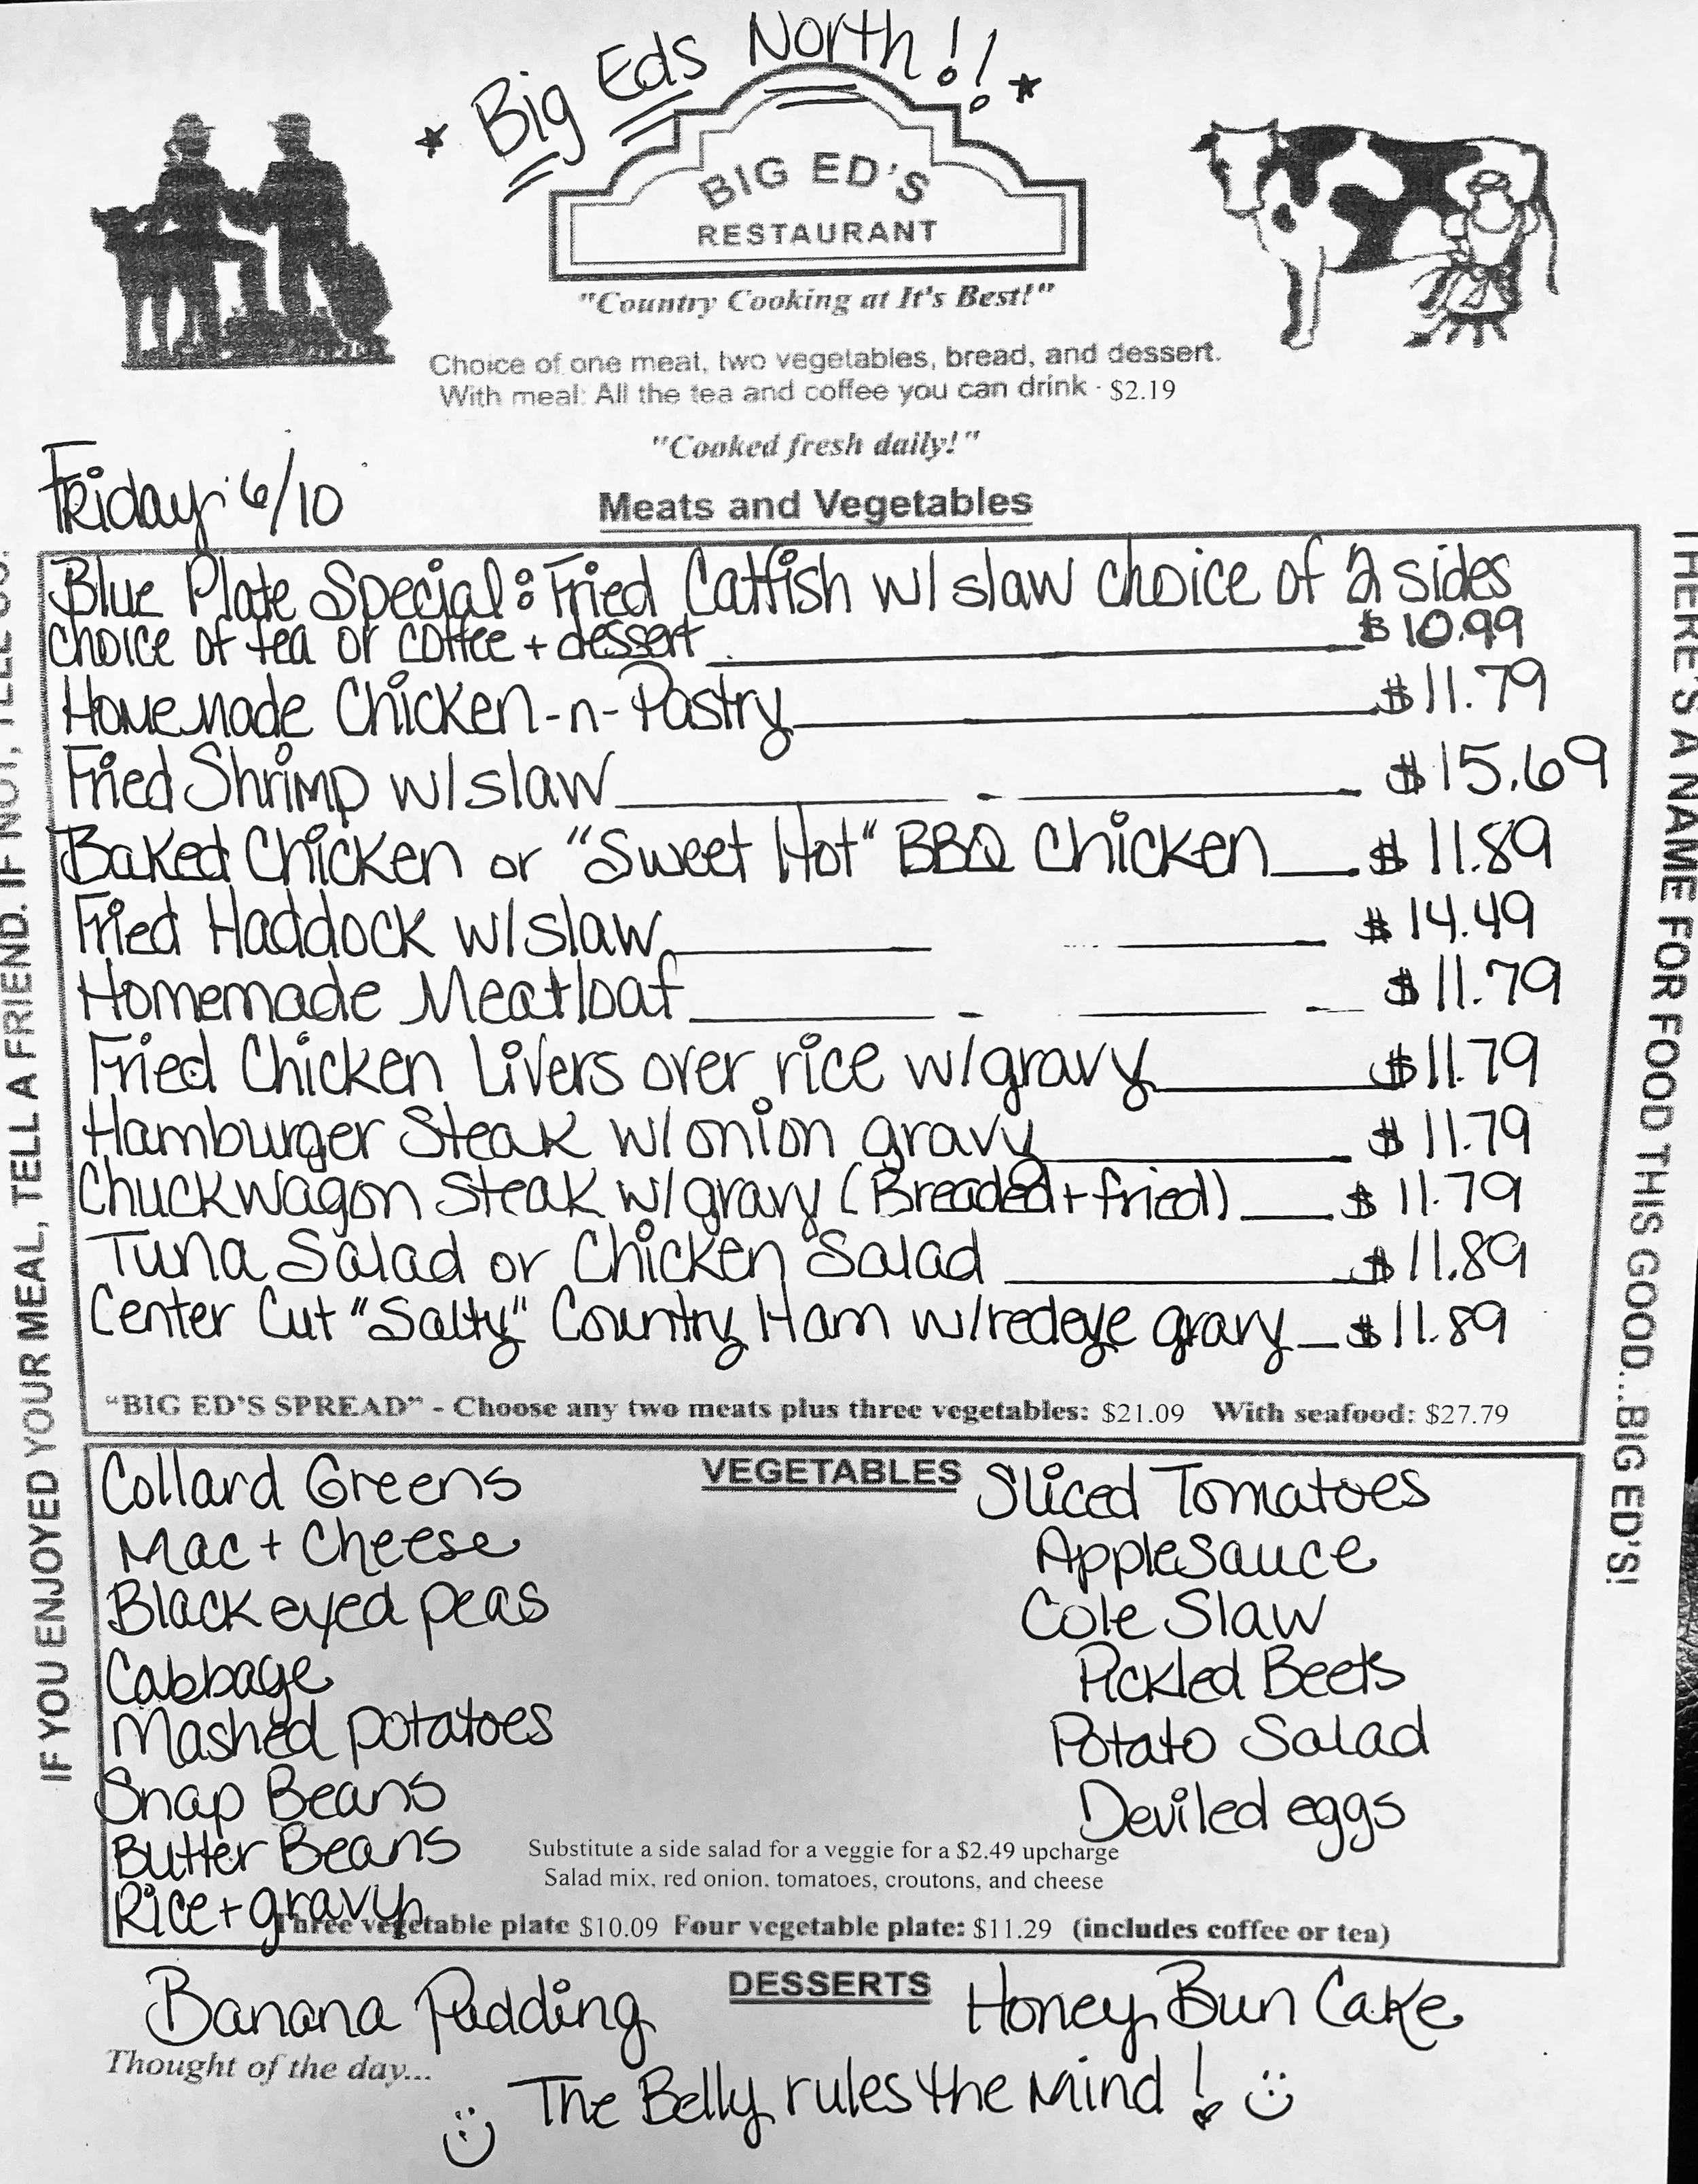 * Big Eds North!! *
BIG ED'S
RESTAURANT
"Country Cooking at It's Best!"
Choice of one meat, two vegetables, bread, and dessert.
With meal: All the tea and coffee you can drink - $2.19
"Cooked fresh daily!"
Friday 6/10
Meats and Vegetables
Blue Plate Special: Fried Catfish w/ slaw choice of 2 sides
choice of tea or coffee + dessert $10.99
Homemade Chicken-n-Pastry $11.79
Fried Shrimp w/slaw $15.69
Baked Chicken or "Sweet Hot" BBQ Chicken $11.89
Fried Haddock w/slaw $14.49
Homemade Meatloaf $11.79
Fried Chicken Livers over rice w/gravy $11.79
Hamburger Steak w/onion gravy $11.79
Chuckwagon Steak w/gravy (Breaded + fried) $11.79
Tuna Salad or Chicken Salad $11.89
Center Cut "Salty" Country Ham w/redeye gravy $11.89
"BIG ED'S SPREAD" - Choose any two meats plus three vegetables: $21.09 With seafood: $27.79
VEGETABLES
Collard Greens
Mac + Cheese
Black eyed peas
Cabbage
Mashed potatoes
Snap Beans
Butter Beans
Rice + gravy
Sliced Tomatoes
Applesauce
Cole Slaw
Pickled Beets
Potato Salad
Deviled eggs
Substitute a side salad for a veggie for a $2.49 upcharge
Salad mix, red onion, tomatoes, croutons, and cheese
Three vegetable plate $10.09 Four vegetable plate: $11.29 (includes coffee or tea)
DESSERTS
Banana Pudding
Honey Bun Cake
Thought of the day...
The Belly rules the Mind!
IF YOU ENJOYED YOUR MEAL, TELL A FRIEND. IF NOT, TELL US.
THERE'S A NAME FOR FOOD THIS GOOD...BIG ED'S!